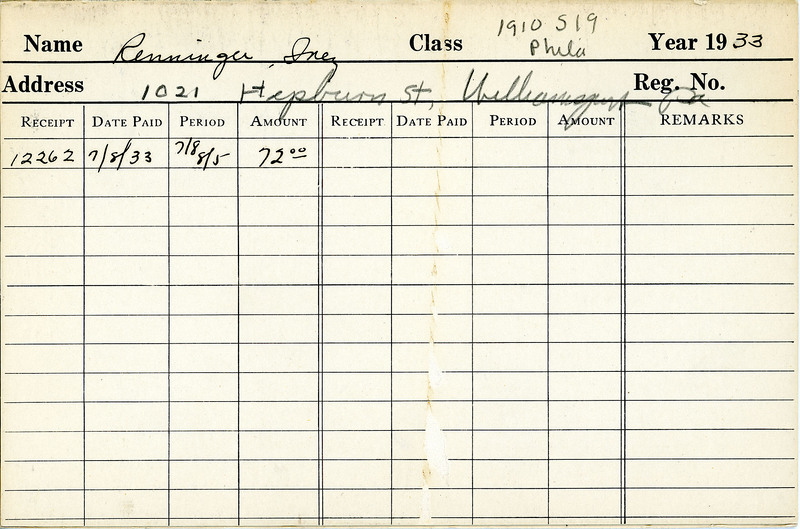 1910 S 19
Name Renninger, Inez Class Phila Year 1933
Address 1021 Hepburn St, Williamsport Pa Reg. No.
RECEIPT DATE PAID PERIOD AMOUNT RECEIPT DATE PAID PERIOD AMOUNT REMARKS
12262 7/8/33 7/8 8/5 72.00